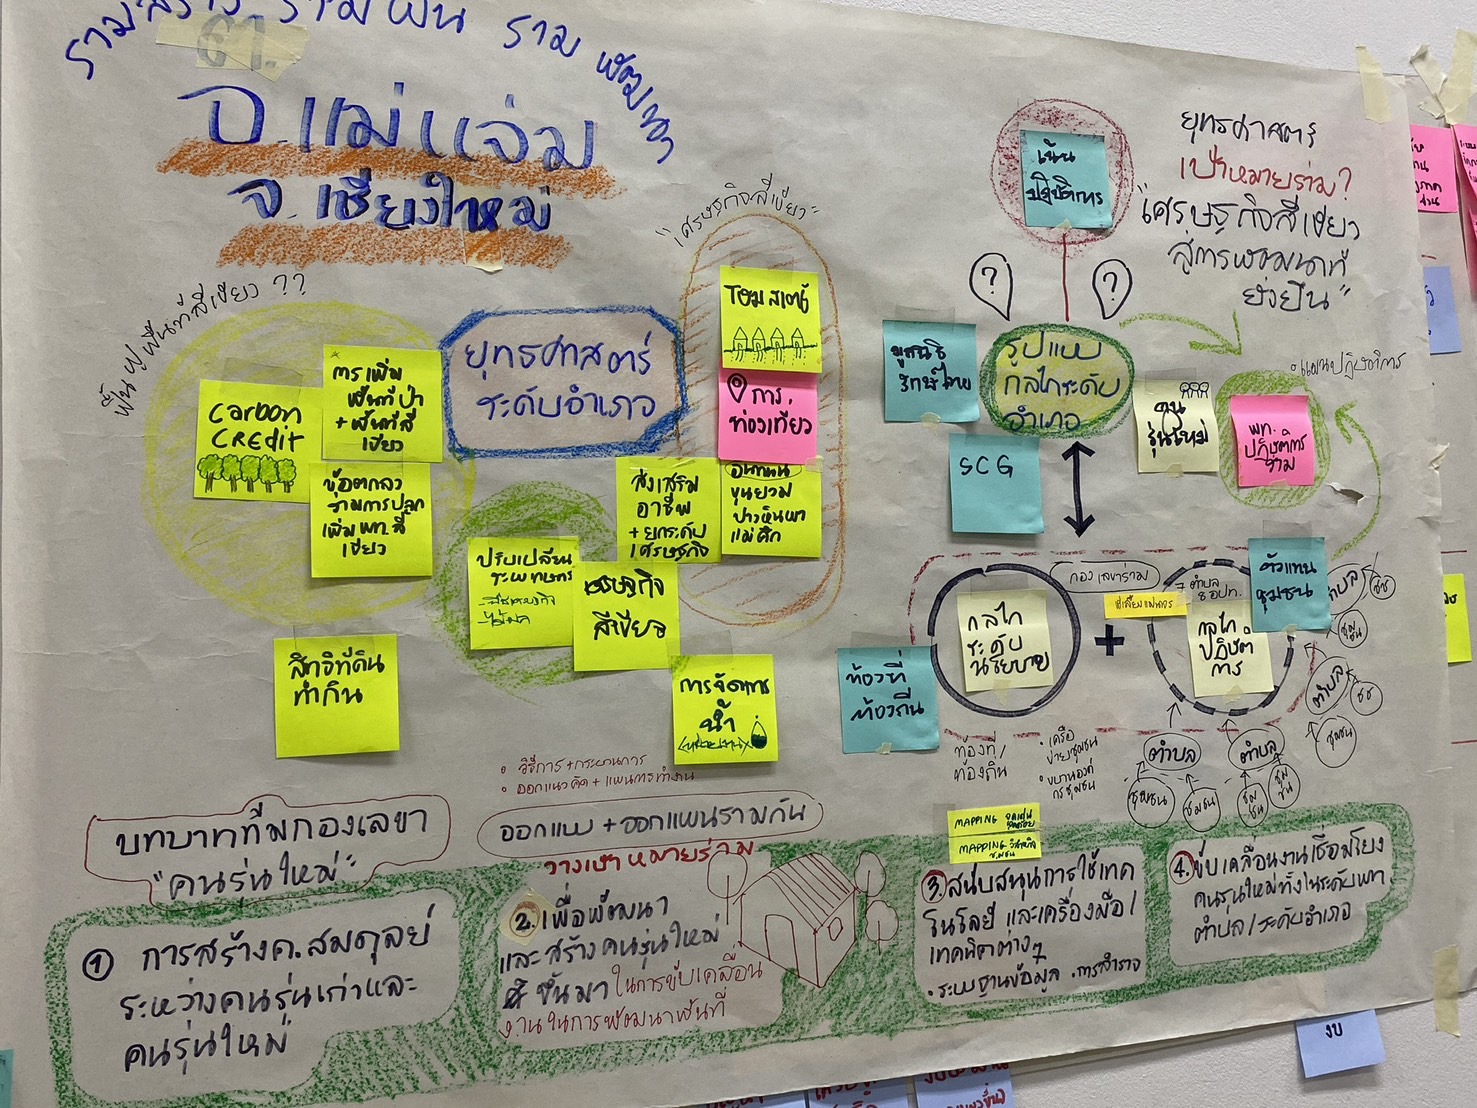 ร่วมสร้าง ร่วมฝัน ร่วม พัฒนา
อ.แม่แจ่ม
จ.เชียงใหม่
ฟื้นฟูพื้นที่สีเขียว ??
Carbon
CREdit
การเพิ่ม
พื้นที่ป่า
+พื้นที่สี
เขียว
ข้อตกลง
ร่วมการปลูก
เพิ่ม พท.สี
เขียว
สิทธิที่ดิน
ทำกิน
ยุทธศาสตร์
ระดับอำเภอ
"เศรษฐกิจสีเขียว"
โฮมสเตย์
การ
ท่องเที่ยว
ส่งเสริม
อาชีพ
+ยกระดับ
เศรษฐกิจ
ขุนยวม
แม่ศึก
ปรับเปลี่ยน
-ไม้ผล
เศรษฐกิจ
สีเขียว
การจัดการ
น้ำ
ยุทธศาสตร์
เป้าหมายร่วม?
"เศรษฐกิจสีเขียว
สู่การพัฒนาที่
ยั่งยืน"
เน้น
ปฏิบัติการ
?
?
มูลนิธิ
รักษ์ไทย
รูปแบบ
กลไกระดับ
อำเภอ
SCG
คน
รุ่นใหม่
แผนปฏิบัติการ
พท.
ปฏิบัติการ
ร่วม
กองเลขาร่วม
กลไก
ระดับ
นโยบาย
+
7 ตำบล
8 อปท.
กลไก
ปฏิบัติ
การ
ตัวแทน
ชุมชน
ท้องที่
ท้องถิ่น
ท้องที่/
ท้องถิ่น
• เครือ
ข่ายชุมชน
ตำบล
ชช
ชุมชน
ตำบล
ชช
ชุมชน
ตำบล
ตำบล
ชุมชน
ชุมชน
ชุมชน
ชุมชน
บทบาททีมกองเลขา
"คนรุ่นใหม่"
• วิธีการ+กระบวนการ
• ออกแนวคิด+แผนการทำงาน
ออกแบบ+ออกแผนร่วมกัน
วางเป้าหมายร่วม
① การสร้างค.สมดุลย์
ระหว่างคนรุ่นเก่าและ
คนรุ่นใหม่
2. เพื่อพัฒนา
และสร้างคนรุ่นใหม่
ขึ้นมา ในการขับเคลื่อน
งานในการพัฒนาพื้นที่
MAPPING
MAPPING
3. สนับสนุนการใช้เทค
โนโลยี และเครื่องมือ/
เทคนิคต่างๆ
• ระบบฐานข้อมูล • การสำรวจ
4. ขับเคลื่อนงานเชื่อมโยง
คนรุ่นใหม่ทั้งในระดับพท
ตำบล/ระดับอำเภอ
งบ